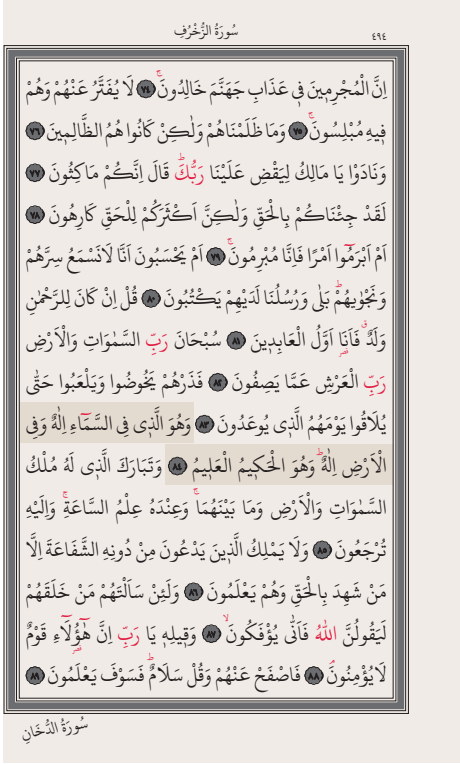 سُورَةُ الزُّخْرُفِ
٤٩٤
اِنَّ الْمُجْرِمِينَ فِي عَذَابِ جَهَنَّمَ خَالِدُونَۚ ﴿٧٤﴾ لَا يُفَتَّرُ عَنْهُمْ وَهُمْ
فِيهِ مُبْلِسُونَۚ ﴿٧٥﴾ وَمَا ظَلَمْنَاهُمْ وَلٰكِنْ كَانُوا هُمُ الظَّالِمِينَ ﴿٧٦﴾
وَنَادَوْا يَا مَالِكُ لِيَقْضِ عَلَيْنَا رَبُّكَۜ قَالَ اِنَّكُمْ مَاكِثُونَ ﴿٧٧﴾
لَقَدْ جِئْنَاكُمْ بِالْحَقِّ وَلٰكِنَّ اَكْثَرَكُمْ لِلْحَقِّ كَارِهُونَ ﴿٧٨﴾
اَمْ اَبْرَمُٓوا اَمْرًا فَاِنَّا مُبْرِمُونَۚ ﴿٧٩﴾ اَمْ يَحْسَبُونَ اَنَّا لَانَسْمَعُ سِرَّهُمْ
وَنَجْوٰيهُمْۜ بَلٰى وَرُسُلُنَا لَدَيْهِمْ يَكْتُبُونَ ﴿٨٠﴾ قُلْ اِنْ كَانَ لِلرَّحْمٰنِ
وَلَدٌۗ فَاَنَا اَوَّلُ الْعَابِدِينَ ﴿٨١﴾ سُبْحَانَ رَبِّ السَّمٰوَاتِ وَالْاَرْضِ
رَبِّ الْعَرْشِ عَمَّا يَصِفُونَ ﴿٨٢﴾ فَذَرْهُمْ يَخُوضُوا وَيَلْعَبُوا حَتّٰى
يُلَاقُوا يَوْمَهُمُ الَّذِي يُوعَدُونَ ﴿٨٣﴾ وَهُوَ الَّذِي فِي السَّمَٓاءِ اِلٰهٌ وَفِي
الْاَرْضِ اِلٰهٌۜ وَهُوَ الْحَكِيمُ الْعَلِيمُ ﴿٨٤﴾ وَتَبَارَكَ الَّذِي لَهُ مُلْكُ
السَّمٰوَاتِ وَالْاَرْضِ وَمَا بَيْنَهُمَاۚ وَعِنْدَهُ عِلْمُ السَّاعَةِۚ وَاِلَيْهِ
تُرْجَعُونَ ﴿٨٥﴾ وَلَا يَمْلِكُ الَّذِينَ يَدْعُونَ مِنْ دُونِهِ الشَّفَاعَةَ اِلَّا
مَنْ شَهِدَ بِالْحَقِّ وَهُمْ يَعْلَمُونَ ﴿٨٦﴾ وَلَئِنْ سَاَلْتَهُمْ مَنْ خَلَقَهُمْ
لَيَقُولُنَّ اللّٰهُ فَاَنّٰى يُؤْفَكُونَۙ ﴿٨٧﴾ وَقِيلِهِ يَا رَبِّ اِنَّ هٰٓؤُ۬لَٓاءِ قَوْمٌ
لَايُؤْمِنُونَۢ ﴿٨٨﴾ فَاصْفَحْ عَنْهُمْ وَقُلْ سَلَامٌۜ فَسَوْفَ يَعْلَمُونَ ﴿٨٩﴾
سُورَةُ الدُّخَانِ